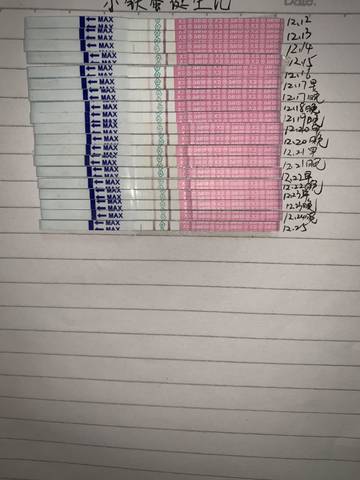 小铁蛋诞生记
Date:
MAX 12.12
MAX 12.13
MAX 12.14
MAX 12.15
MAX 12.16
MAX 12.17早
MAX 12.17晚
MAX 12.18晚
MAX 12.19晚
MAX 12.20早
MAX 12.20晚
MAX 12.21早
MAX 12.21晚
MAX 12.22早
MAX 12.22晚
MAX 12.23早
MAX 12.23晚
MAX 12.24晚
MAX 12.25